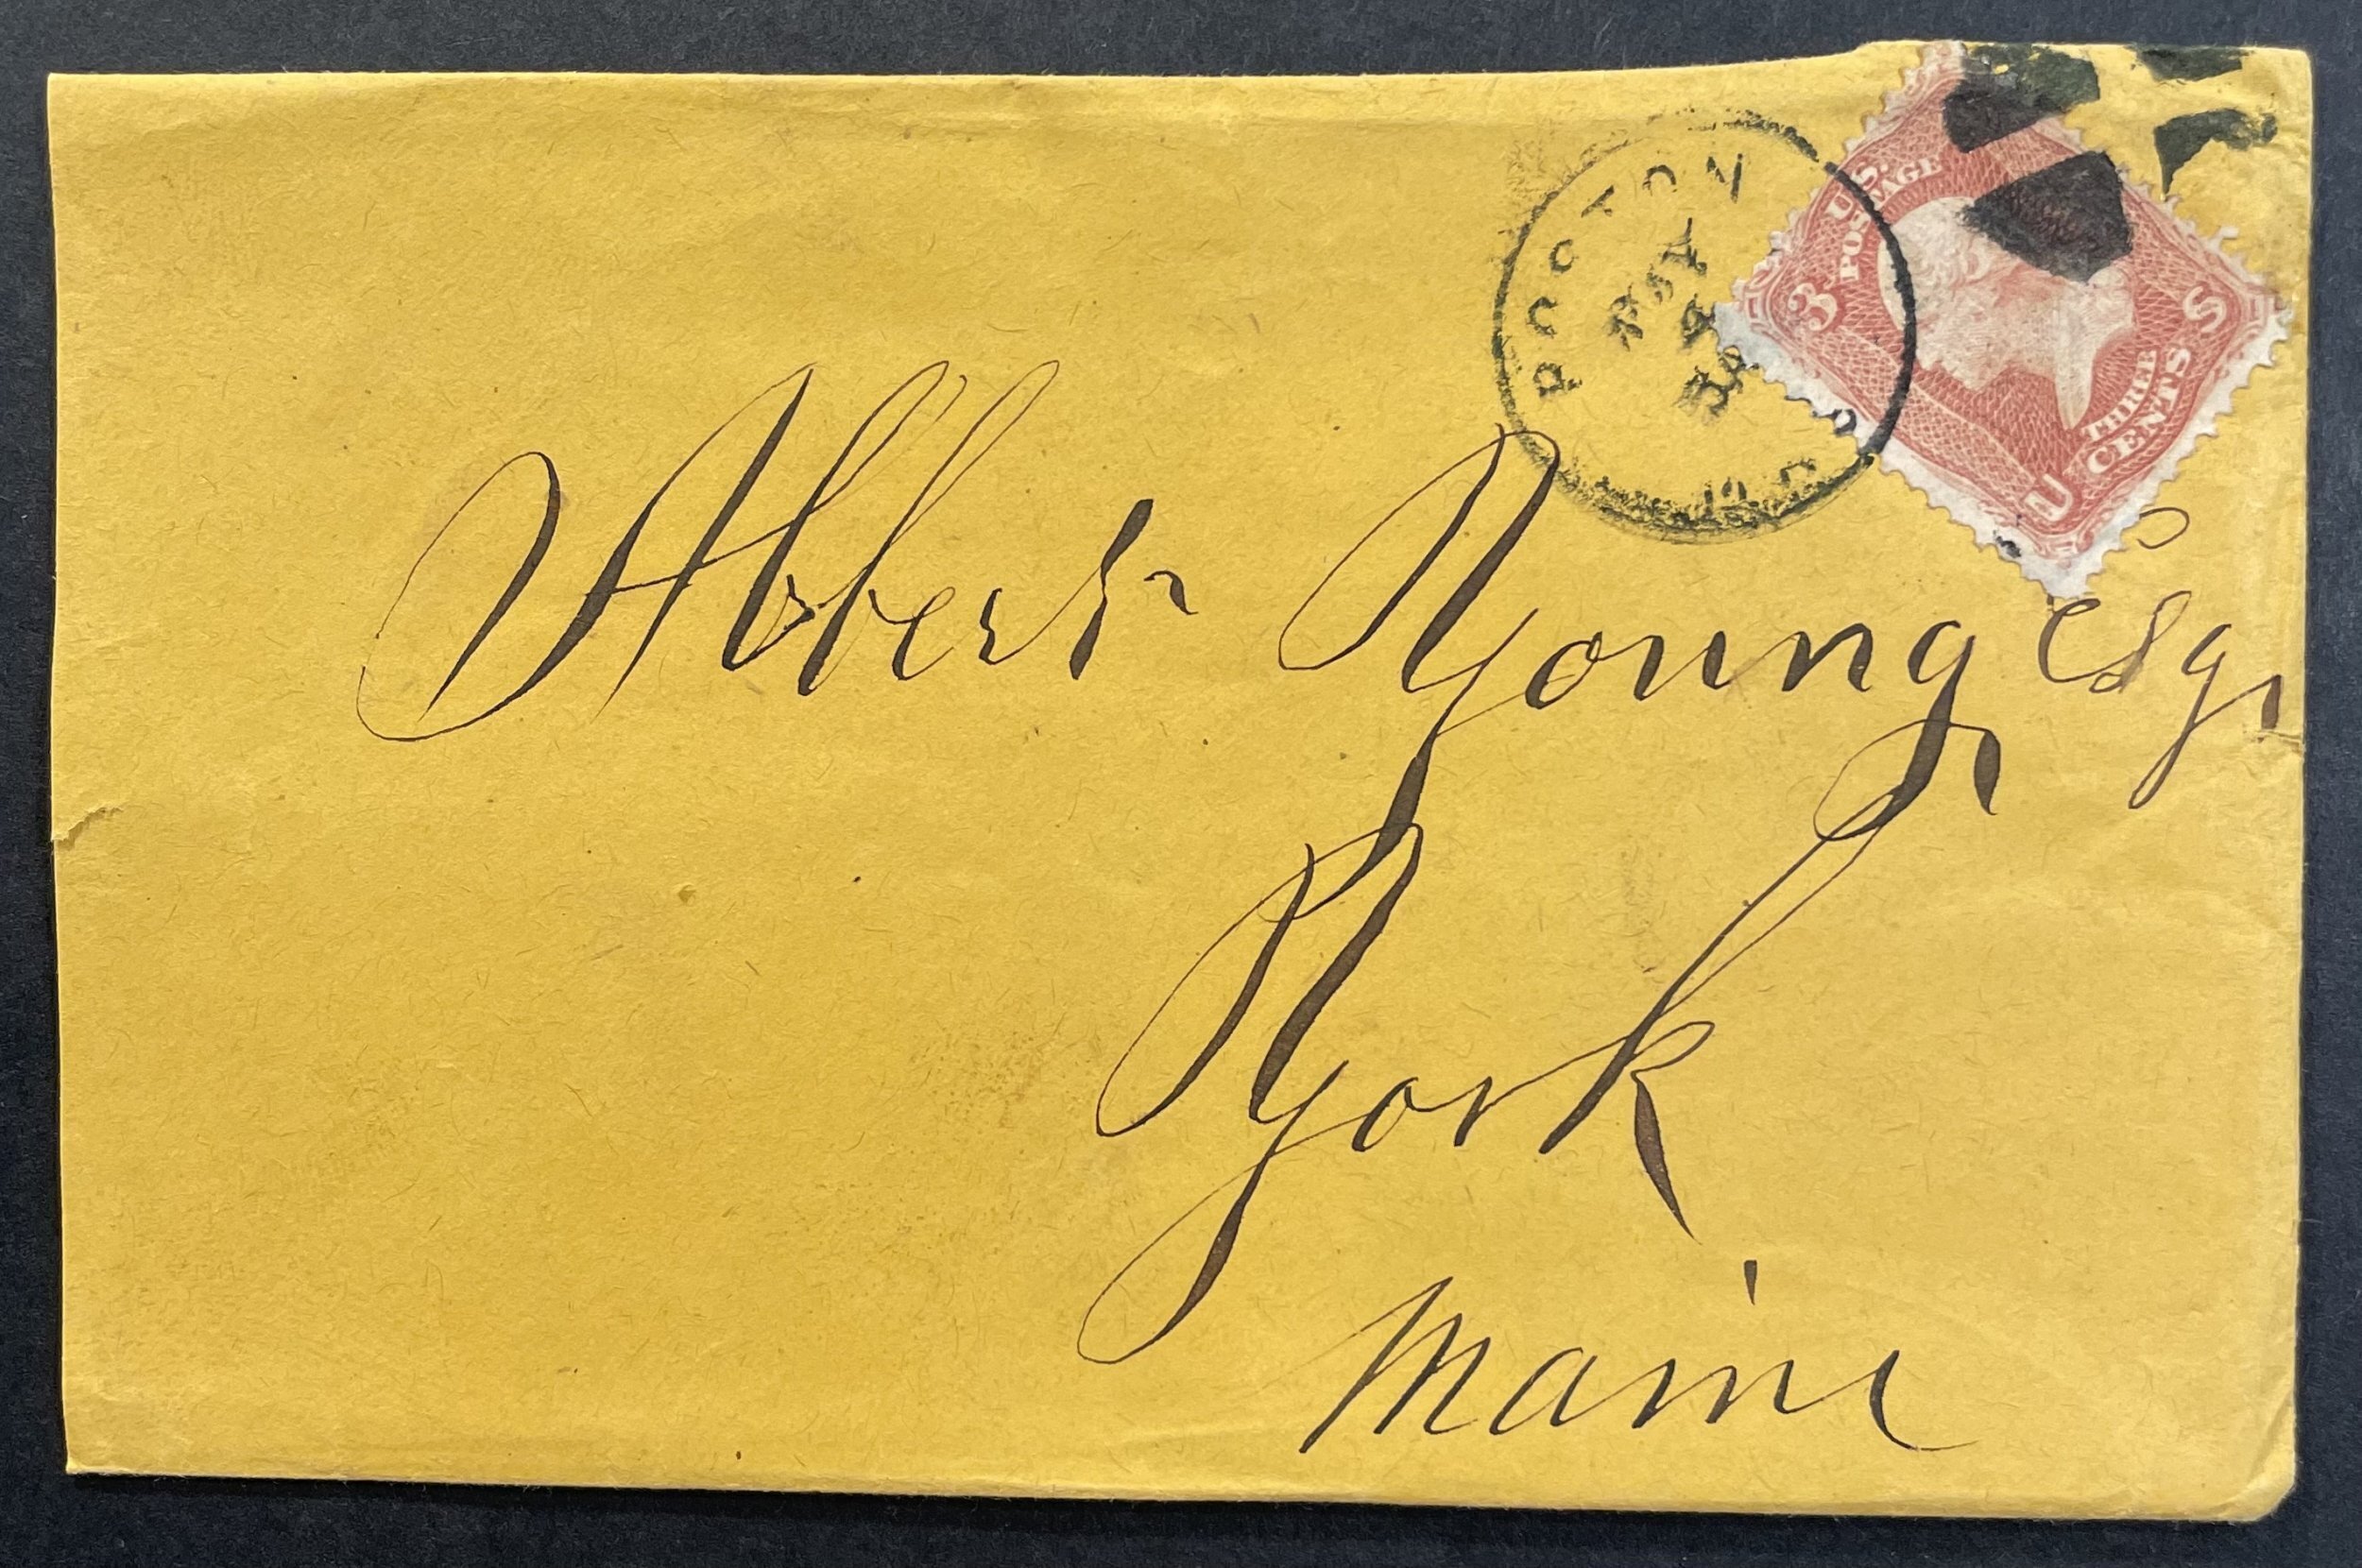 U.S.
POSTAGE
3
THREE
CENTS
U S
Albert Young Esq,
York
Maine